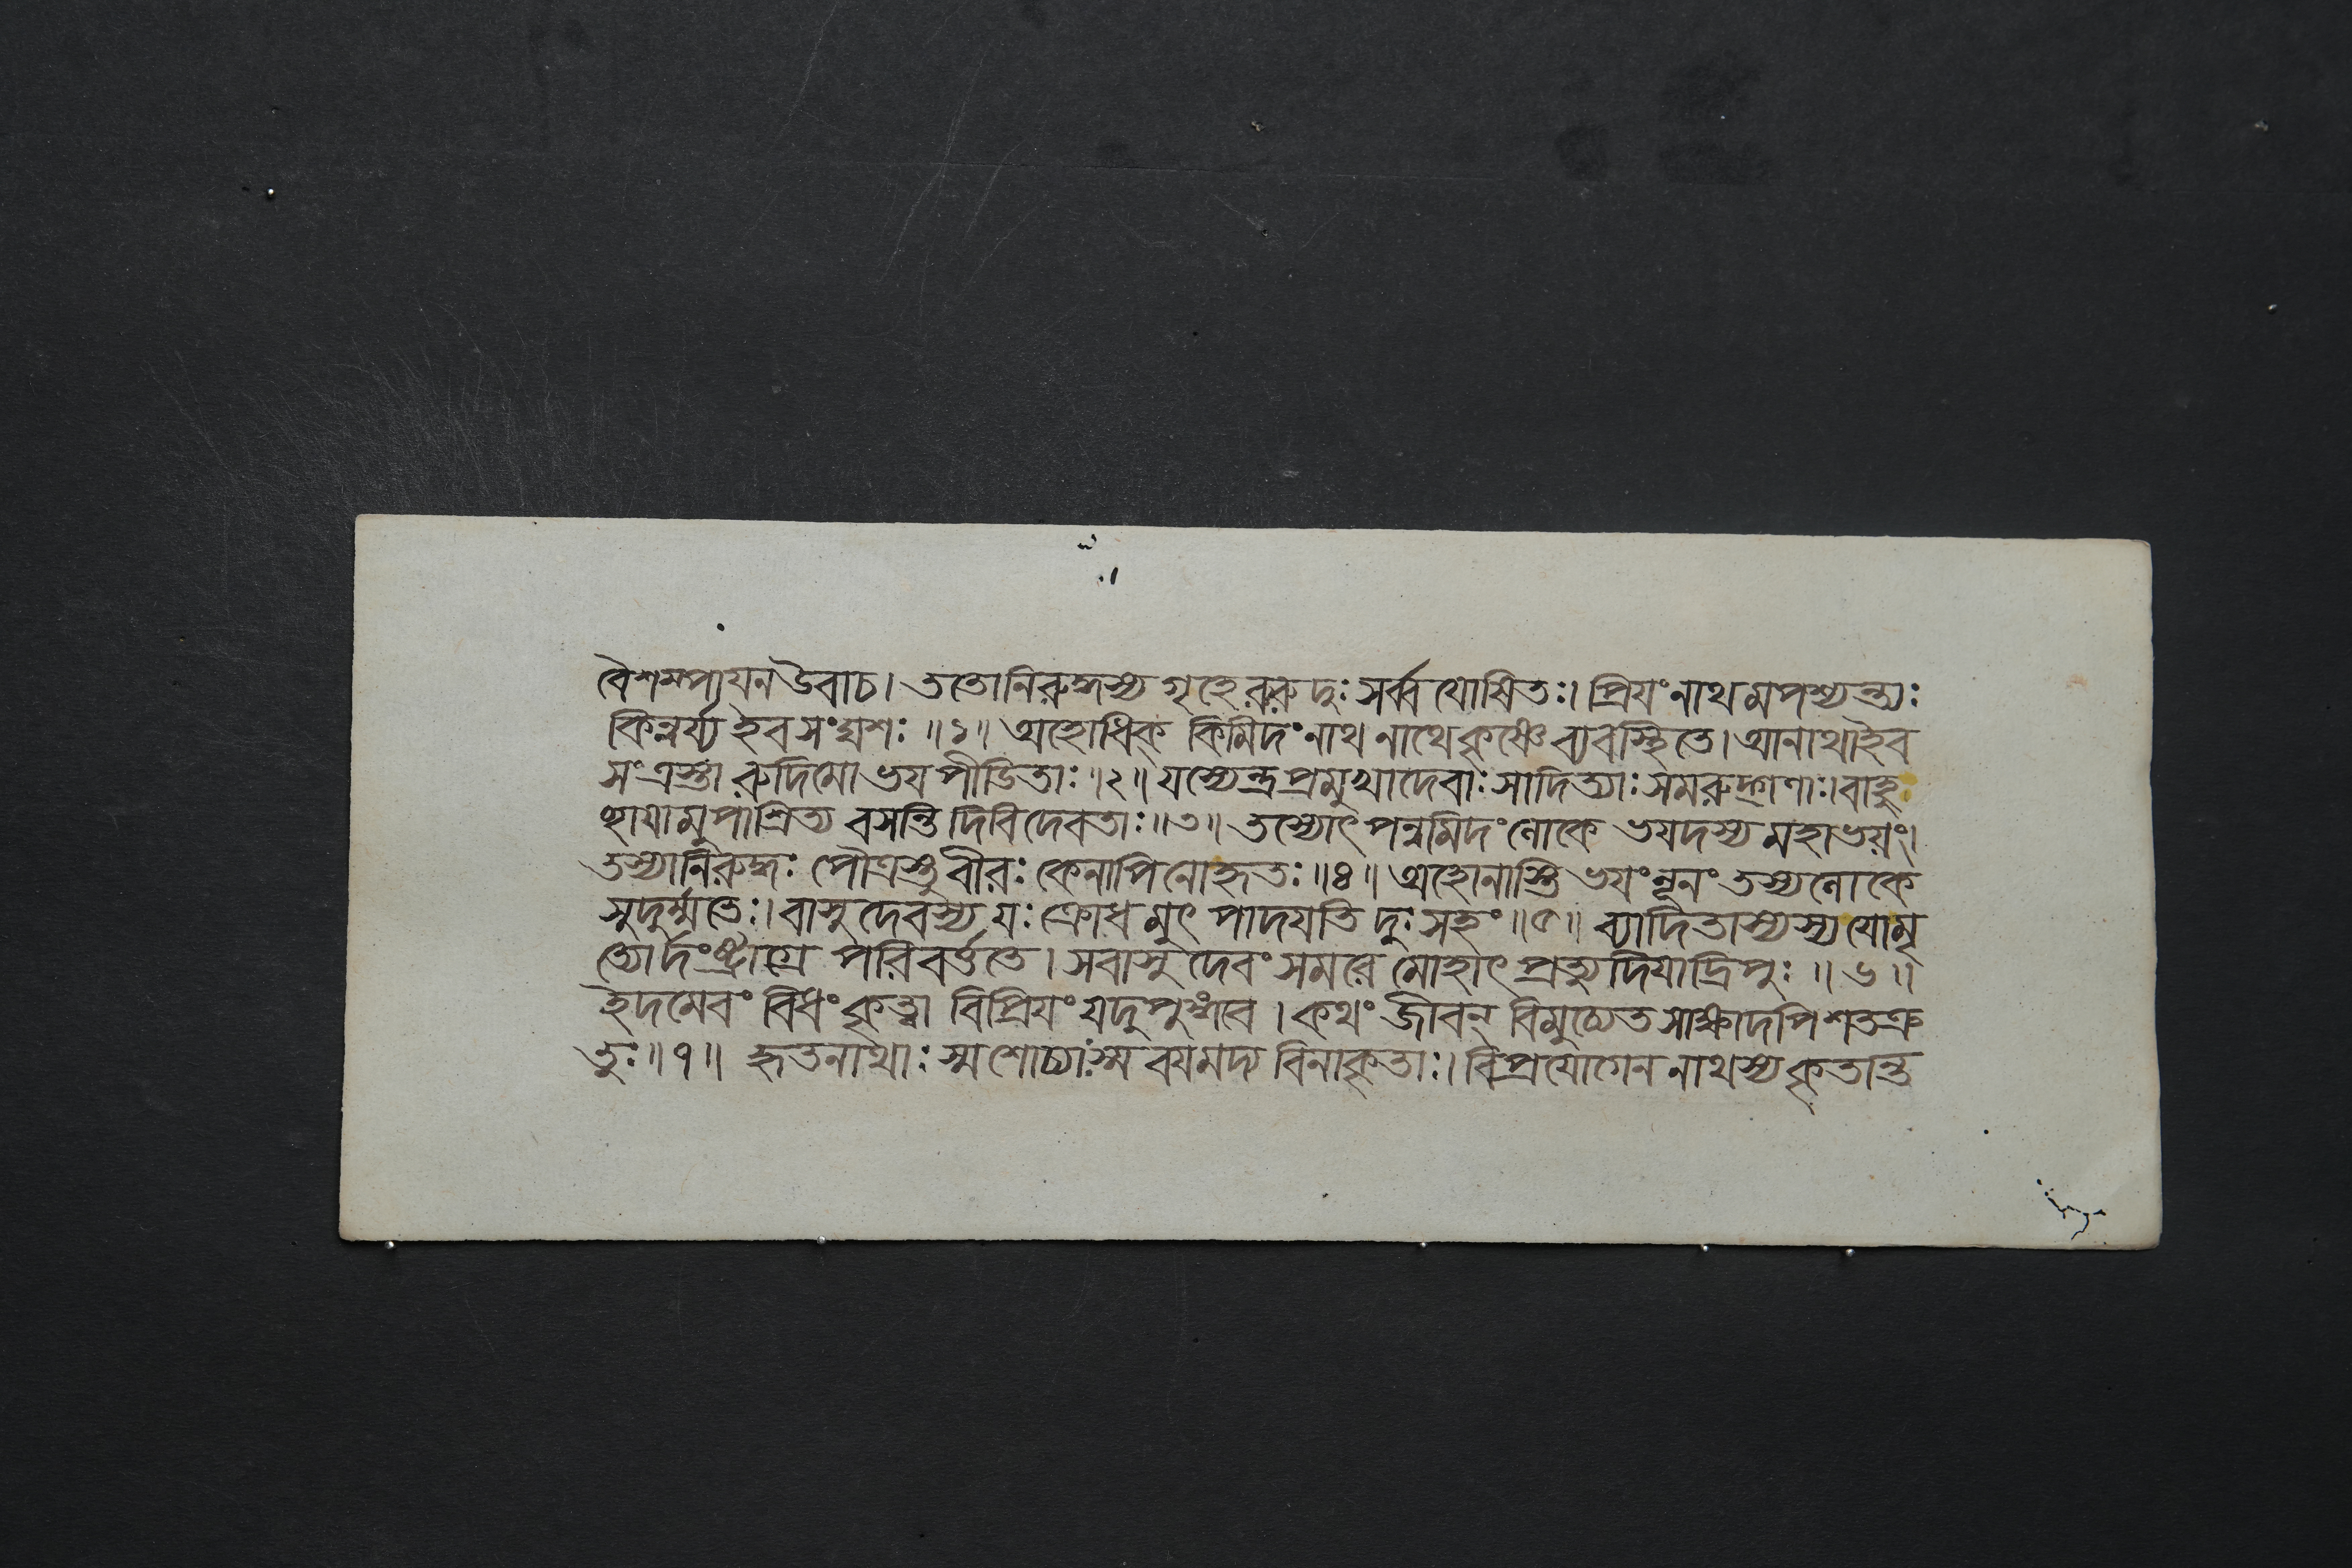 বৈশম্পায়ন উবাচ। ততোনিরুদ্ধস্য গৃহে রুরুদুঃ সর্ব্ব যোষিতঃ। প্রিয়ংনাথমপশ্যন্ত্যঃ
কিন্নর্য্য ইব সংঘশঃ ॥১॥ অহোধিক্ কিমিদংনাথ নাথেকৃষ্ণে ব্যবস্থিতে। অনাথাইব
সংত্রস্তা রুদিমো ভয় পীডিতাঃ॥২॥ যস্যেন্দ্র প্রমুখাদেবাঃ সাদিত্যাঃ সমরুদ্গণাঃ। বাহু
চ্ছায়ামুপাশ্রিত্য বসন্তি দিবিদেবতাঃ॥৩॥ তস্যোৎ পন্নমিদং লোকে ভয়দস্য মহাভয়ং।
তস্যানিরুদ্ধঃ পৌত্রস্তু বীরঃ কেনাপিনোহৃতঃ॥৪॥ অহোনাস্তি ভয়ং নূনং তস্যলোকে
সুদুর্ম্মতেঃ। বাসুদেবস্য যঃ ক্রোধমুৎ পাদয়তি দুঃসহং॥৫॥ ব্যাদিতাস্যস্য যোমৃ
ত্যোর্দংষ্ট্রাগ্রে পরিবর্ত্ততে। সবাসুদেবং সমরে মোহাৎ প্রত্যুদিয়াদ্রিপুঃ ॥৬॥
ইদমেবং বিধং কৃত্বা বিপ্রিয়ং যদুপুঙ্গবে। কথং জীবন্ বিমুচ্যেত সাক্ষাদপিশতক্র
তুঃ॥৭॥ হৃতনাথাঃ স্মশোচ্যাঃস্ম বয়মদ্য বিনাকৃতাঃ। বিপ্রয়োগেন নাথস্য কৃতান্ত